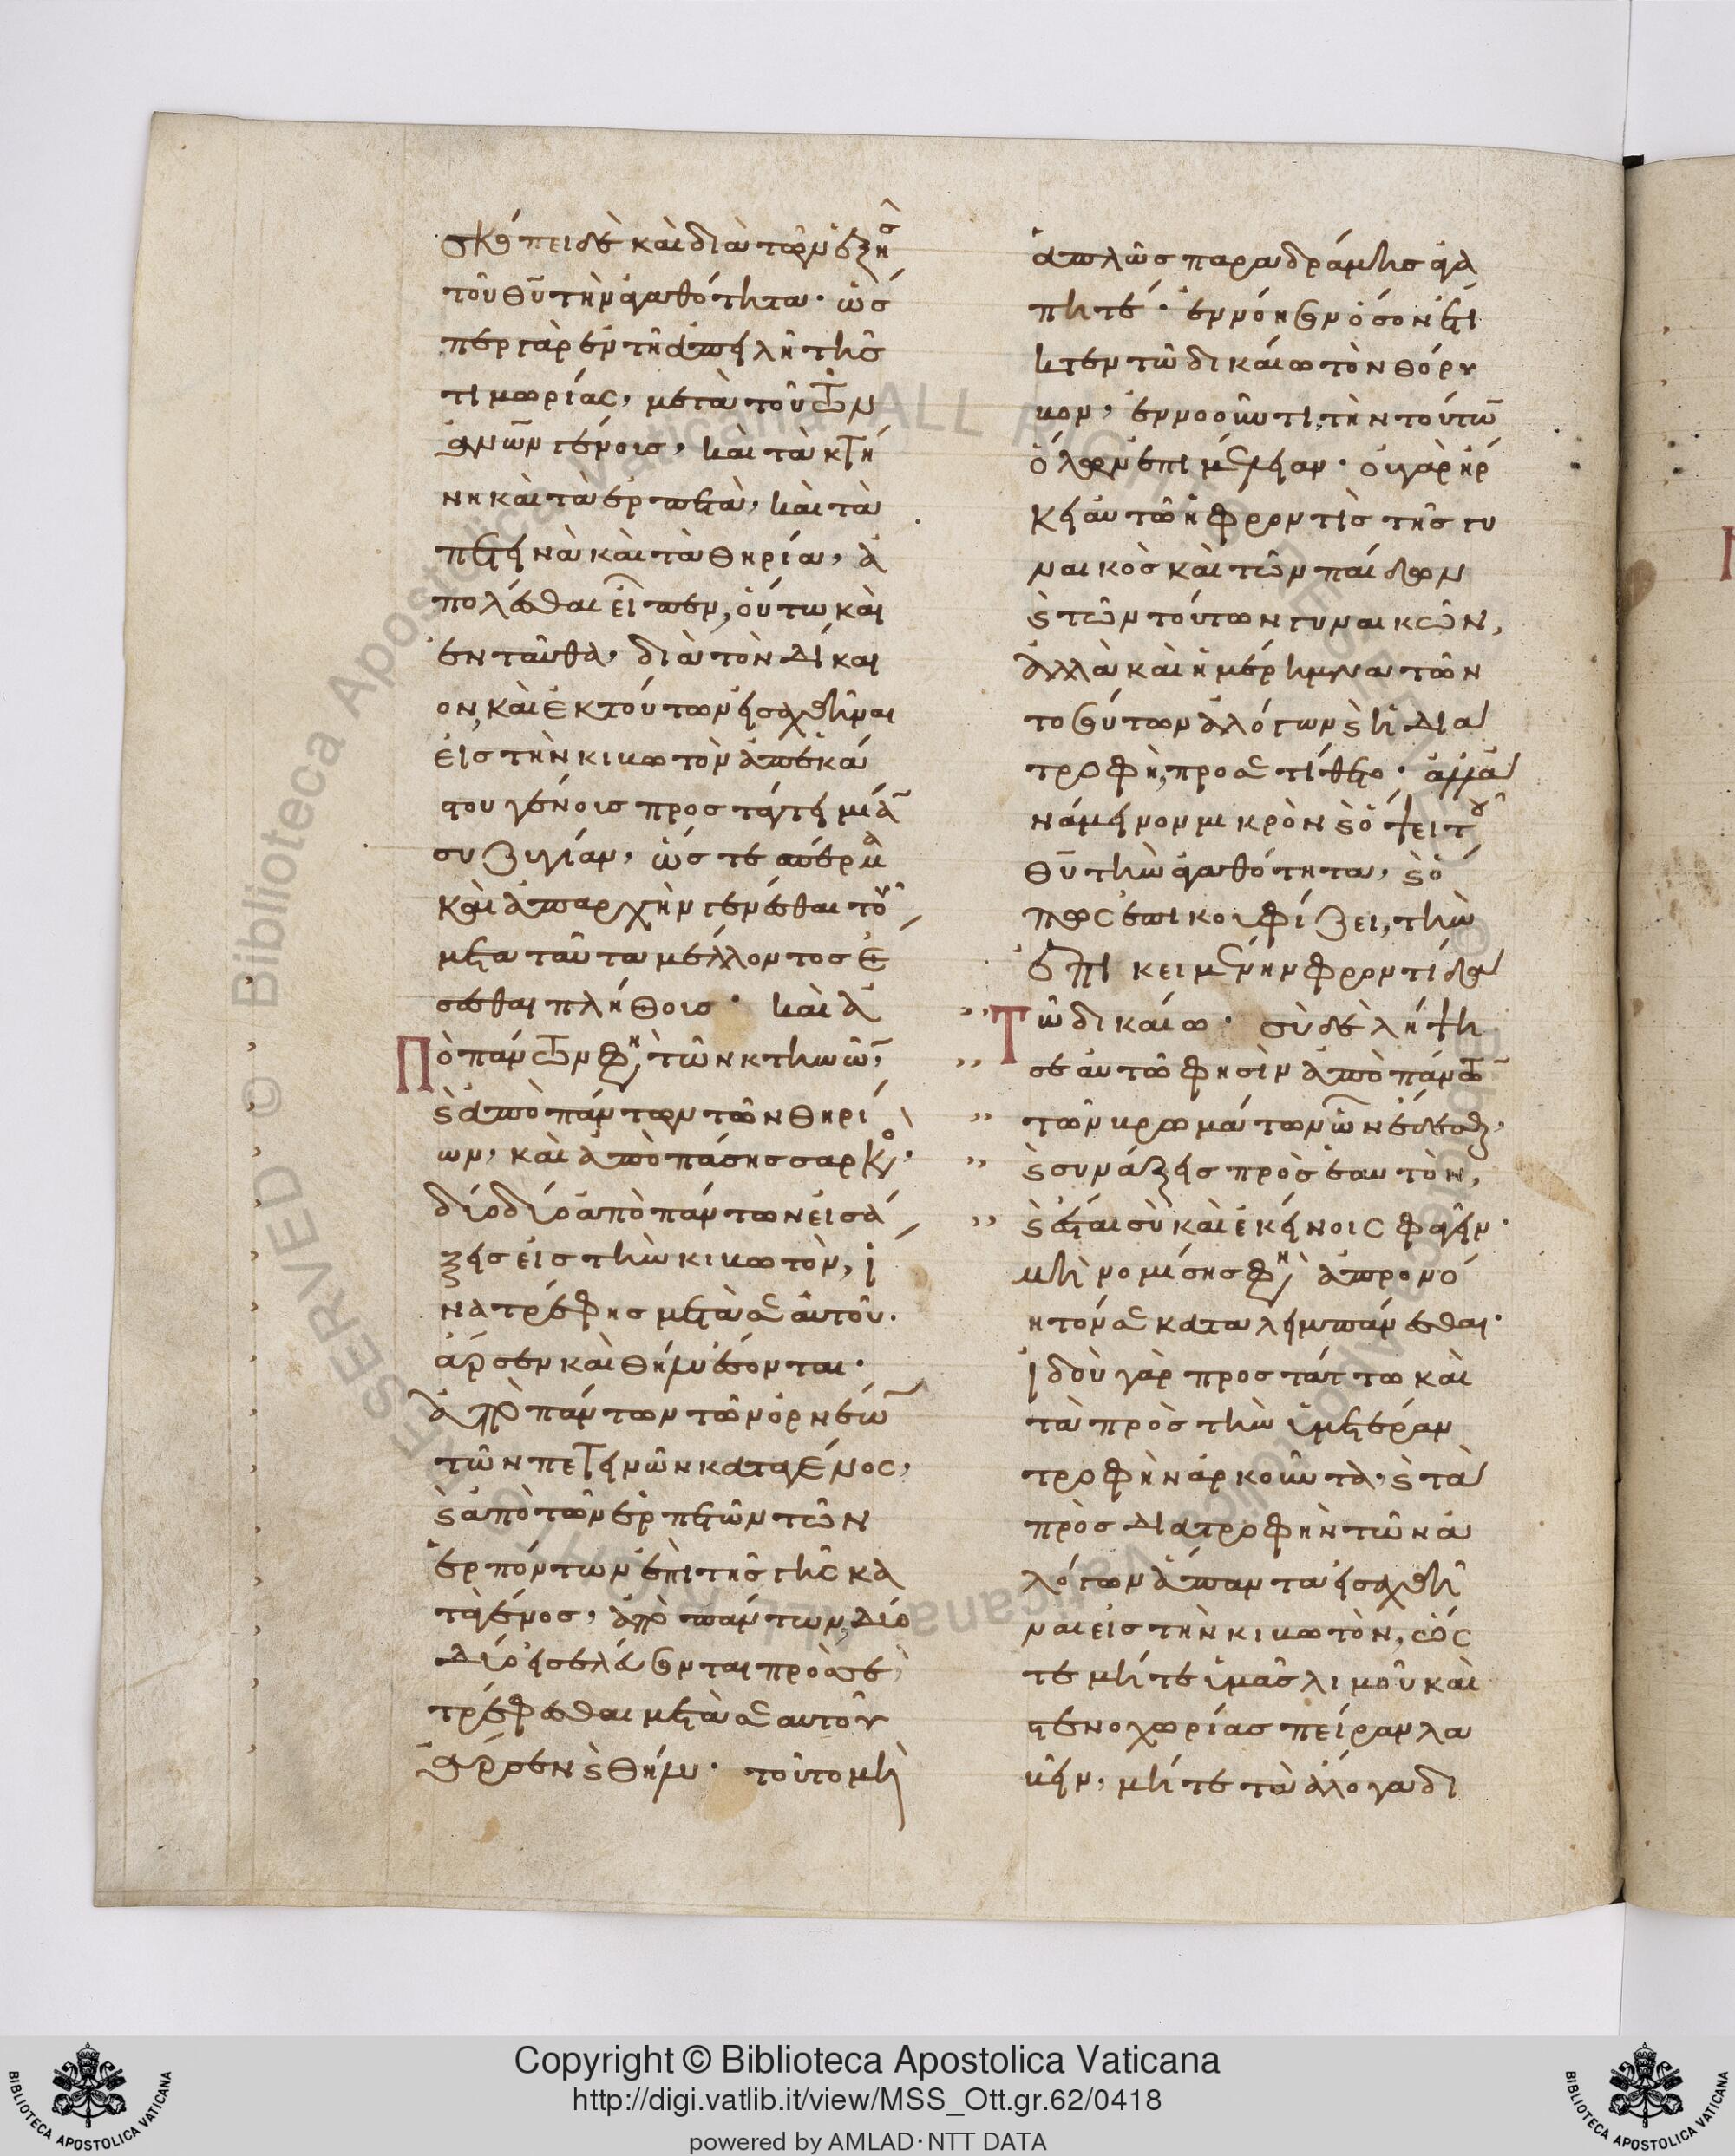 σκόπει δὲ καὶ διὰ τῶν ἑξῆς
τοῦ θῦ τὴν ἀγαθότητα· ὥσ
περ γὰρ ἐν τῆ ἀπειλῆ τῆς
τιμωρίας, μετὰ τοῦ τῶν
ἀνῶν γένους, καὶ τὰ κτή
νη καὶ τὰ ἑρπετὰ, καὶ τὰ
πετεινὰ καὶ τὰ θηρία, ἀ
πολέσθαι εἶπεν, οὕτω καὶ
ἐνταῦθα, διὰ τὸν δίκαι
ον, καὶ ἐκ τούτων εἰσαχθῆναι
εἰς τὴν κιβωτὸν ἀπὸ ἑκά
στου γένους προστάττει μίαν
συζυγίαν, ὥστε σπέρμα
καὶ ἀπαρχὴν γενέσθαι τοῦ
μετὰ ταῦτα μέλλοντος ἔ
σεσθαι πλήθους· καὶ ἀ
πὸ πάντων φη τῶν κτηνῶν,
ϗ ἀπὸ πάντων τῶν θηρί
ων, καὶ ἀπὸ πάσης σαρκὸς·
δύο δύο ἀπὸ πάντων εἰσά
ξεις εἰς τὴν κιβωτὸν, ἵ
να τρέφης μετὰ σεαυτοῦ.
ἄρσεν καὶ θῆλυ ἔσονται·
ἀπὸ πάντων τῶν ὀρνέων
τῶν πετεινῶν κατὰ γένος,
ϗ ἀπὸ τῶν ἑρπετῶν τῶν
ἑρπόντων ἐπὶ τῆς γῆς κα
τὰ γένος, ἀπὸ πάντων, δύο
δύο εἰσελεύσονται πρὸς σὲ,
τρέφεσθαι μετὰ σεαυτοῦ
ἄρσεν ϗ θῆλυ· τοῦτο μὴ
ἁπλῶς παραδράμης ἀγα
πητέ· ἐννόησον ὅσον ἐκί
νησεν τῶ δικαίω τὸν θόρυ
βον, ἐννοοῦντι, τὴν τούτων
ὅλων ἐπιμέλειαν· οὐ γὰρ ἤρ
κει αὐτῶ ἡ φροντὶς τῆς γυ
ναικὸς καὶ τῶν παίδων
ϗ τῶν τούτων γυναικῶν,
ἀλλὰ καὶ ἡ μέριμνα τῶν
τοσούτων ἀλόγων ϗ ἡ δια
τροφὴ, προσετίθετο· ἀλλὰ
νάμεινον μικρὸν ϗ ὄψει τοῦ
θῦ τὴν ἀγαθότητα, ϗ ὅ
πως ἐπικουφίζει, τὴν
ἐπικειμένην φροντίδα
Τῶ δικαίω· σὺ δὲ λήψη
σεαυτῶ φησὶν ἀπὸ πάντων
τῶν βρωμάτων ὧν ἔδεσθε,
ϗ συνάξεις πρὸς ἑαυτὸν,
ϗ ἔσται σὺ καὶ ἐκείνοις φαγεῖν·
μὴ νομίσης φη ἀπρονό
ητόν σε καταλειμπάνεσθαι·
ἰδοὺ γὰρ προστάττω καὶ
τὰ πρὸς τὴν ὑμετέραν
τροφὴν ἀρκοῦντα, ϗ τὰ
πρὸς διατροφὴν τῶν ἀ
λόγων ἅπαντα εἰσαχθῆ
ναι εἰς τὴν κιβωτὸν, ὥς
τε μήτε ὑμᾶς λιμοῦ καὶ
στενοχωρίας πεῖραν λα
βεῖν, μήτε τὰ ἄλογα δι
Copyright © Biblioteca Apostolica Vaticana
http://digi.vatlib.it/view/MSS_Ott.gr.62/0418
powered by AMLAD·NTT DATA